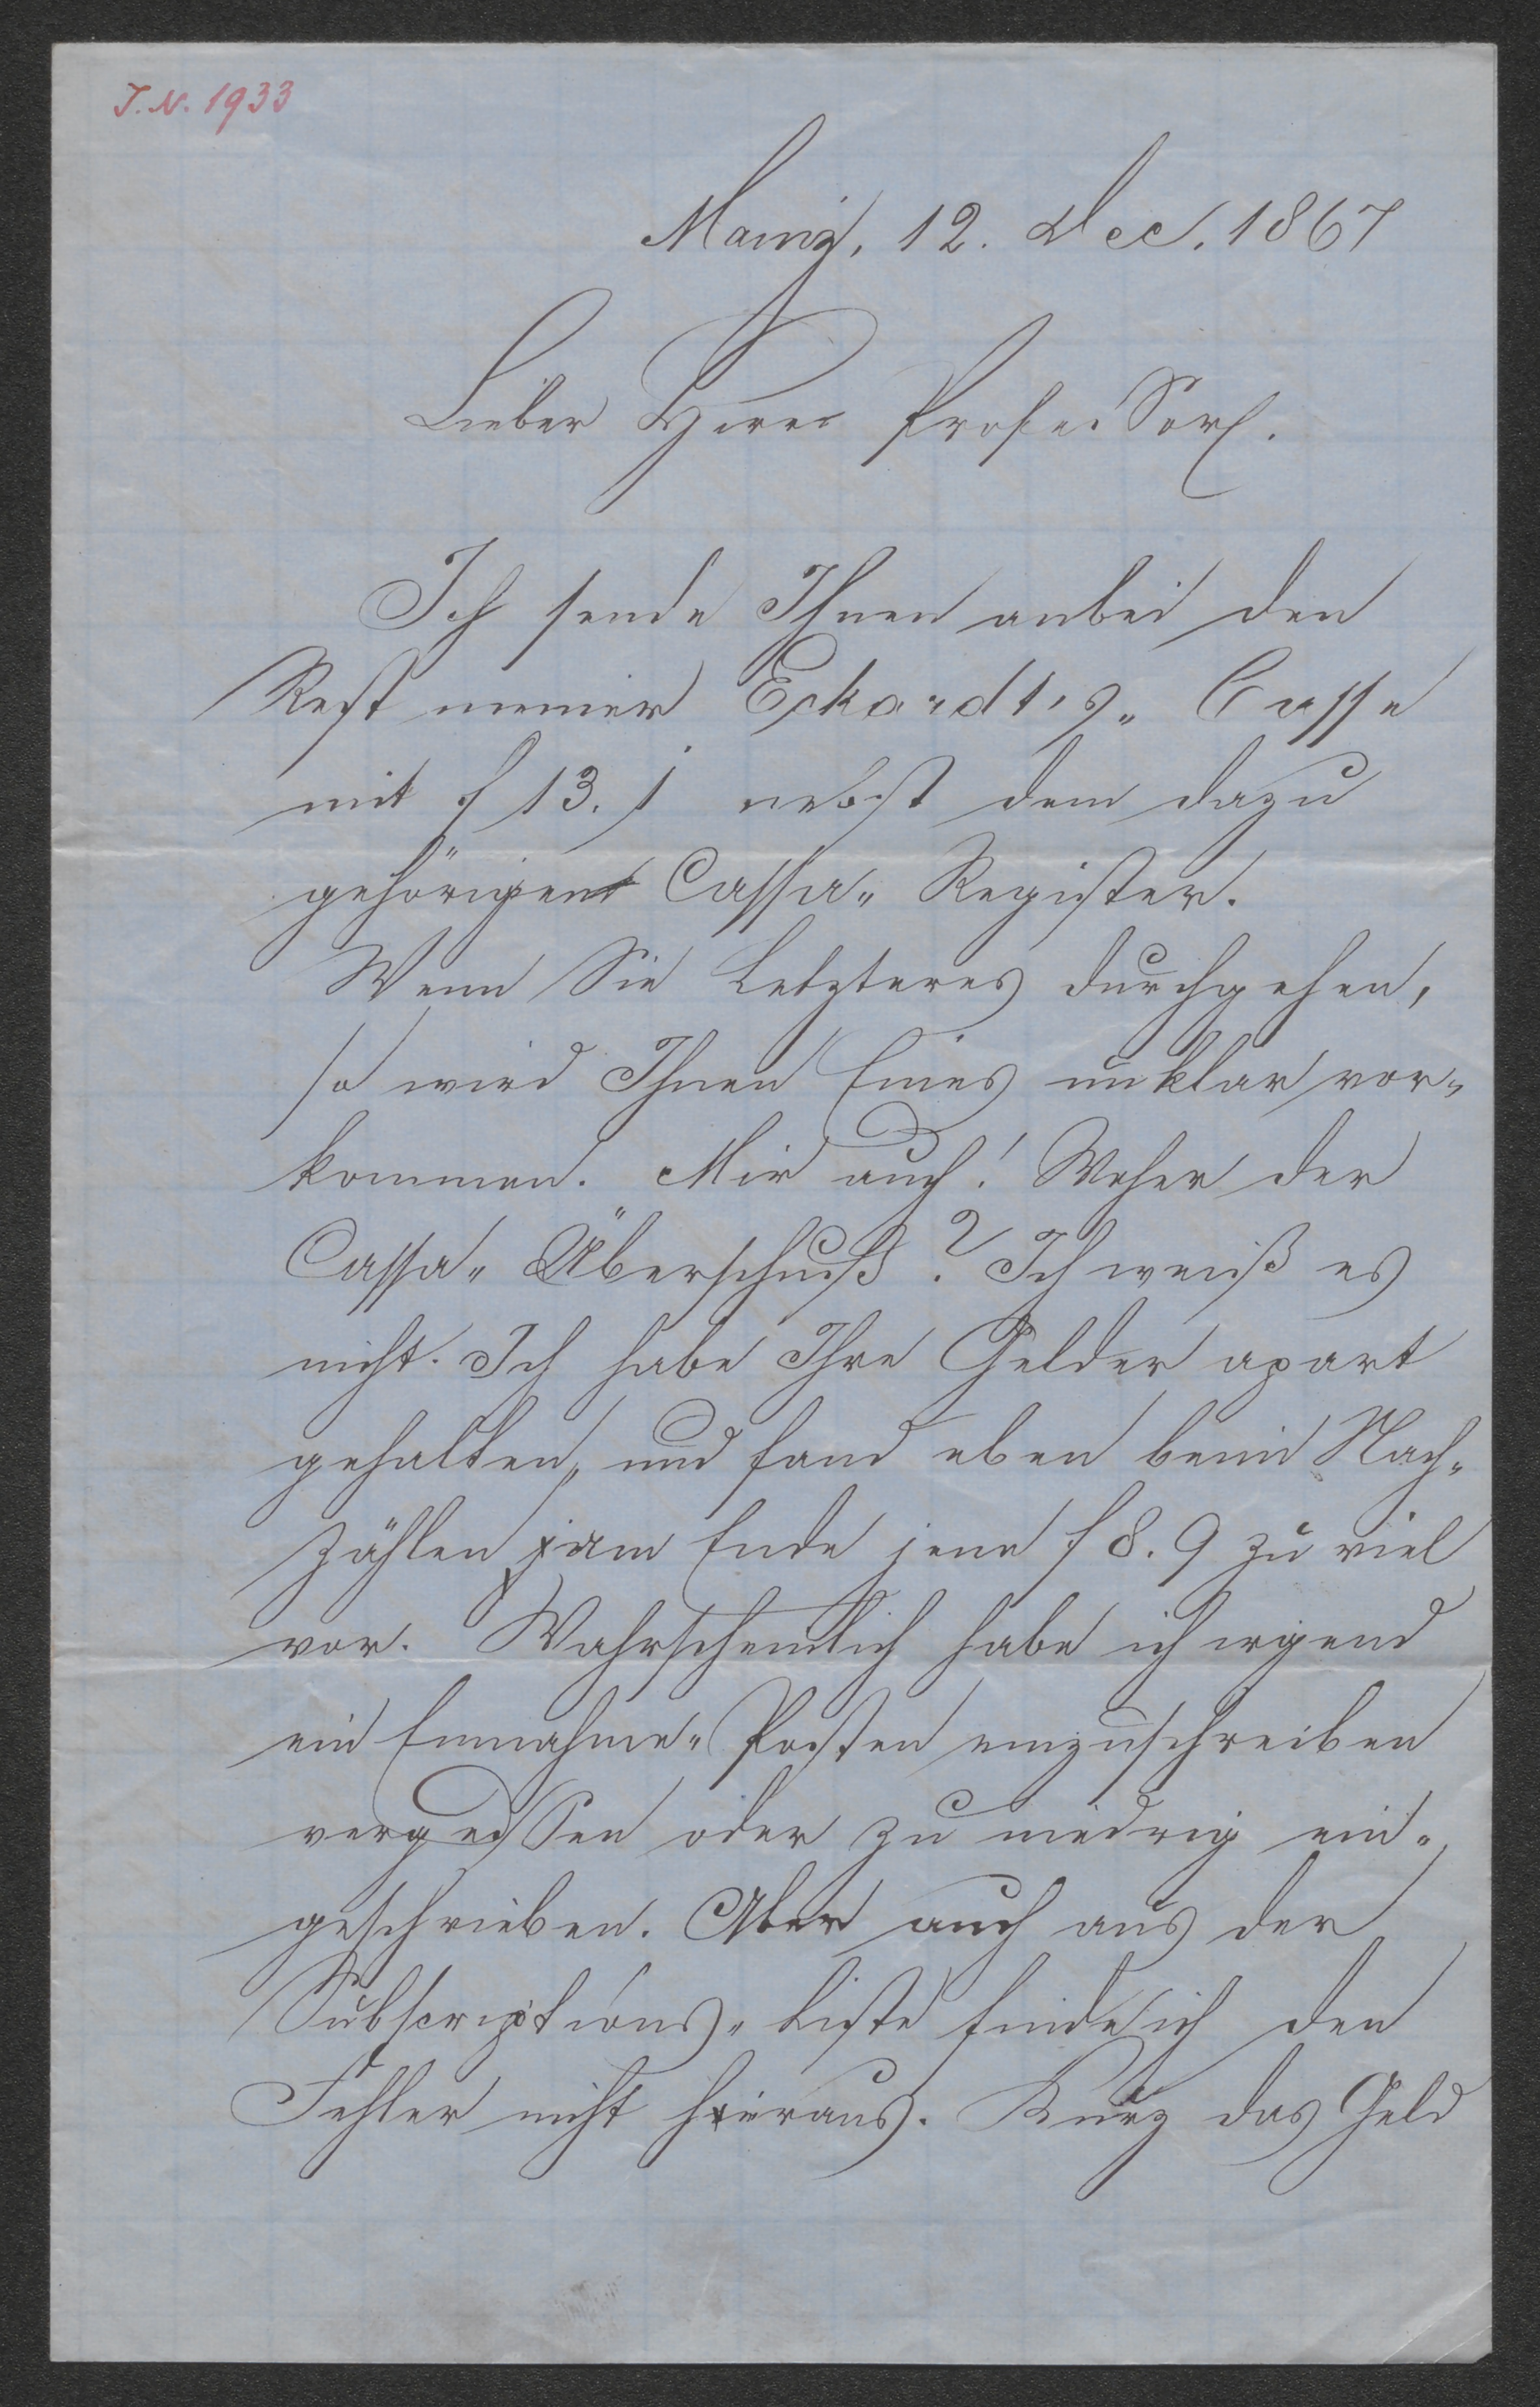 J. N. 1933
Mainz, 12. Dec. 1867
Lieber Herr Professor.
Ich sende Ihnen anbei den
Rest meiner Eckardt's- Casse
mit f 13. 1 nebst dem dazu
gehörigen Cassa- Register.
Wenn Sie Letzteres durchgehen,
so wird Ihnen Eines unklar vor-
kommen. Mir auch! Woher der
Cassa- Überschuß? Ich weiß es
nicht. Ich habe Ihre Gelder apart
gehalten, und fand eben beim Nach-
zählen am Ende jene f 8. 9 zu viel
vor. Wahrscheinlich habe ich irgend
ein Einnahme- Posten einzuschreiben
vergessen oder zu niedrig ein-
geschrieben. Aber auch aus der
Subscriptions- Liste finde ich den
Fehler nicht heraus. Kurz das Geld